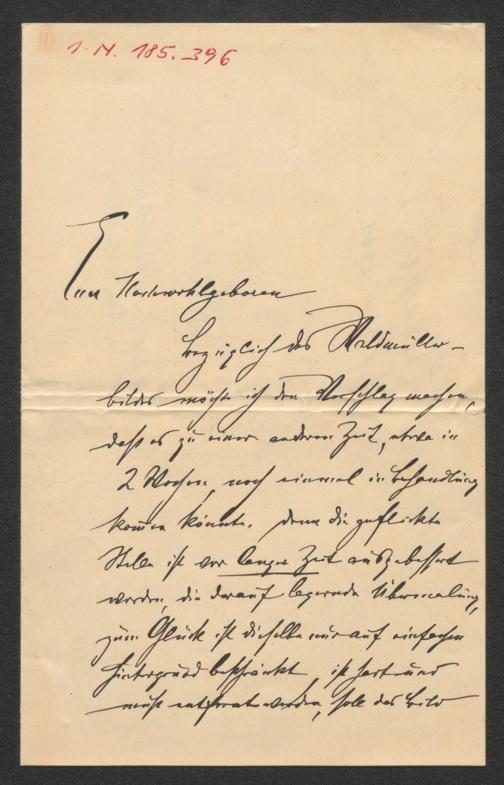 I. N. 185.396
Euer Hochwohlgeboren
bezüglich des Waldmüller-
bildes möchte ich den Vorschlag machen,
daß es zu einer anderen Zeit, etwa in
2 Wochen, noch einmal in Behandlung
kom̄en könnte. Denn die geflickte
Stelle ist vor langer Zeit ausgebessert
worden, die darauf liegende Übermalung,
zum Glück ist dieselbe nur auf einfachen
Hintergrund beschränkt, ist hart und
muß entfernt werden, soll das Bild